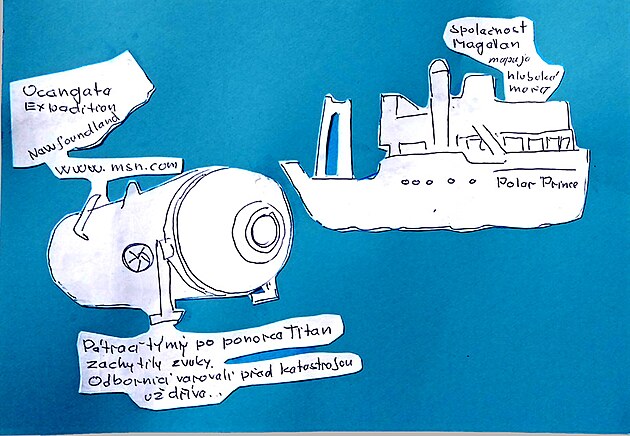 Oceangate
Expedition
Newfoundland
www.msn.com
společnost
Magellan
mapuje
hluboká
moře
Polar Prince
Pátrací týmy po ponorce Titan
zachytily zvuky.
Odborníci varovali před katastrofou
už dříve..